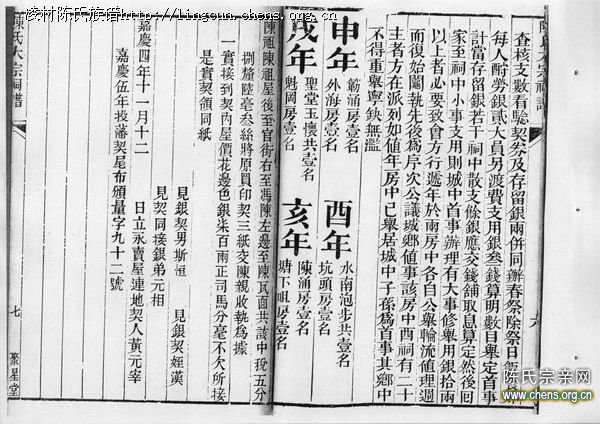 凌村陈氏族谱http://lingcun.chens.org
陳氏大宗祠譜
查核支數看驗契券及存留銀兩併同辦春祭除祭日
每人酌勞銀貳大員另渡費支用銀叁錢算明數目舉定首事
計當存留銀若干祠中散支餘銀應交錢舖取息算定然後回
家至祠中小事支用則城中首事辦理有大事修舉用銀拾兩
以上者必要致會方行遞年於兩房中各自公舉輪流值理週
而復始鬮執先後為序次公議城鄉值事該房中酉祠有二十
主者方在派列如值年房中已舉居城中子孫為首事其鄉中
不得重舉寧缺無濫
申年
簕涌房壹名
外海房壹名
酉年
水南泡步共壹名
坑頭房壹名
戌年
聖堂玉懷共壹名
魁岡房壹名
亥年
陳涌房壹名
塘下咀房壹名
六
陳祖陳祖屋後至官街右至馮陳左邊至陳瓦面共該中稅五分
捌釐陸毫叁絲將原買印契三紙交陳親收執為據
一實接到契內屋價花邊色銀柒百兩正司馬分毫不欠所接
是實契領同紙
見銀契男斯恒
見銀契姪漢
見契同接銀弟元相
嘉慶四年十一月十二
日立永賣屋連地契人黃元宰
嘉慶伍年投藩契尾布頒量字九十二號
陳氏大宗祠譜
七
聚星堂
陈氏宗亲网
www.chens.org.cn